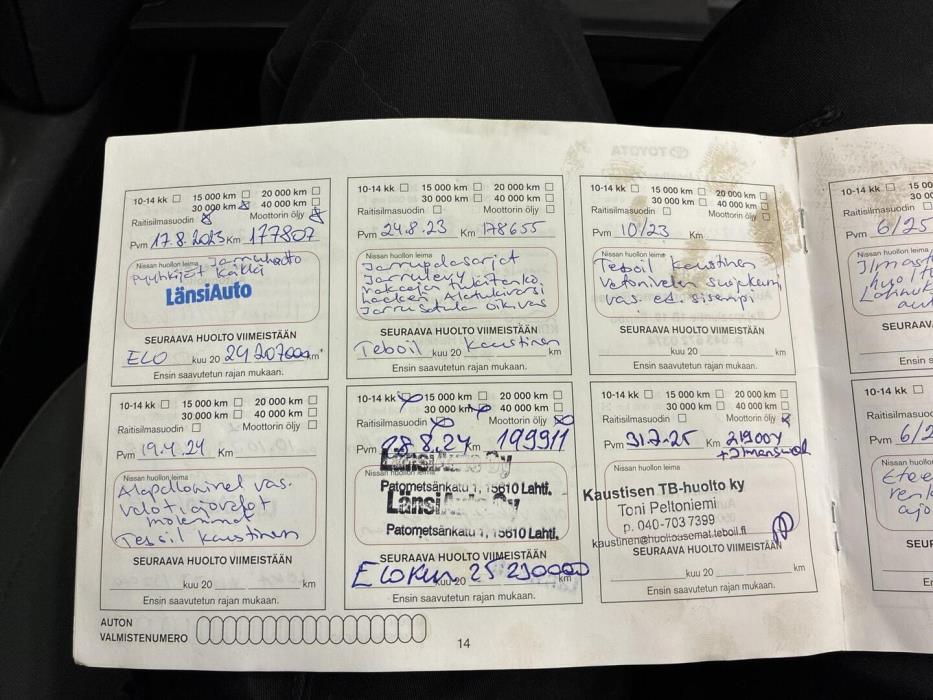 10-14 kk 15 000 km 20 000 km
30 000 km 40 000 km
Raitisilmasuodin Moottorin öljy
Pvm 17.8.2023 Km 177807
Nissan huollon leima Jarruhuolto
Pyyhkijät Kaikki
LänsiAuto
SEURAAVA HUOLTO VIIMEISTÄÄN
ELO kuu 20 24 207000 km
Ensin saavutetun rajan mukaan.
10-14 kk 15 000 km 20 000 km
30 000 km 40 000 km
Raitisilmasuodin Moottorin öljy
Pvm 24.8.23 Km 178655
Nissan huollon leima
Jarrupalasarjat
Jarrulevy
Alatukivarsi
oikvas
SEURAAVA HUOLTO VIIMEISTÄÄN
Teboil kuu 20 Kaustinen km
Ensin saavutetun rajan mukaan.
10-14 kk 15 000 km 20 000 km
30 000 km 40 000 km
Raitisilmasuodin Moottorin öljy
Pvm 10/23 Km
Nissan huollon leima
Teboil Kaustinen
Vetonivelen suojakumi
vas. et. sisempi
SEURAAVA HUOLTO VIIMEISTÄÄN
kuu 20 km
Ensin saavutetun rajan mukaan.
10-14 kk 15 0
20 00
30 00
Raitisilmasuodin
Pvm 6/25
Nissan huollon leima
SEURAAVA
Ensin s
10-14 kk 15 000 km 20 000 km
30 000 km 40 000 km
Raitisilmasuodin Moottorin öljy
Pvm 19.4.24 Km
Nissan huollon leima
Alapallonivel vas.
valot, ajovalot
molemmat
Teboil Kaustinen
SEURAAVA HUOLTO VIIMEISTÄÄN
kuu 20 km
Ensin saavutetun rajan mukaan.
10-14 kk 15 000 km 20 000 km
30 000 km 40 000 km
Raitisilmasuodin Moottorin öljy
Pvm 28.8.24 Km 199911
Nissan huollon leima
LänsiAuto Oy
Patometsänkatu 1, 15610 Lahti.
LänsiAuto Oy
Patometsänkatu 1, 15610 Lahti.
SEURAAVA HUOLTO VIIMEISTÄÄN
ELOKUU kuu 20 25 230000 km
Ensin saavutetun rajan mukaan.
10-14 kk 15 000 km 20 000 km
30 000 km 40 000 km
Raitisilmasuodin Moottorin öljy
Pvm 31.7-25 Km 219004
Nissan huollon leima
Kaustisen TB-huolto ky
Toni Peltoniemi
p. 040-703 7399
kaustinen@huoltoasemat.teboil.fi
SEURAAVA HUOLTO VIIMEISTÄÄN
kuu 20 km
Ensin saavutetun rajan mukaan.
10-14 kk
Raitisilmasuo
Pvm 6/2
Nissan huollo
SEUR
Ens
AUTON
VALMISTENUMERO
14